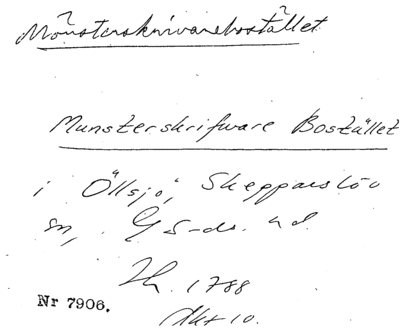 Mönsterskrivarebostället
Munsterskrifware Bostället
i Öllsjö, Skepparslöv
sn, G-ds. hd.
Jh. 1788
Akt 10.
Nr 7906.